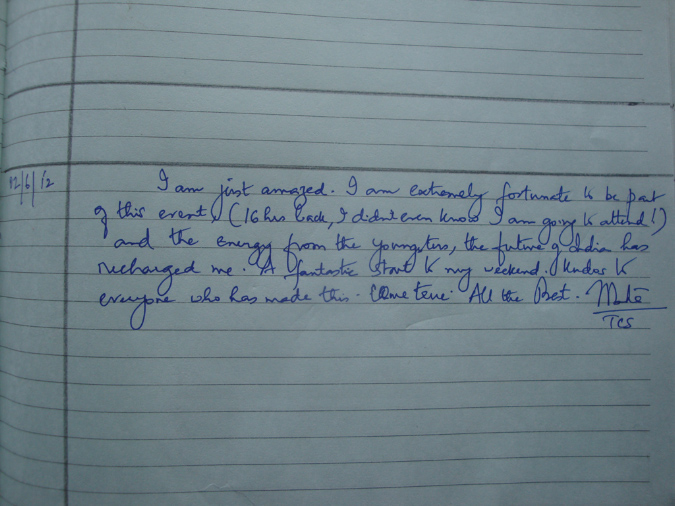 12/6/12 I am just amazed. I am extremely fortunate to be part
of this event, (16 hrs back, I didnt even know I am going to attend!)
and the energy from the youngsters, the future of India has
recharged me. A fantastic start to my weekend. Kudos to
everyone who has made this. Come true. All the Best.
TCS